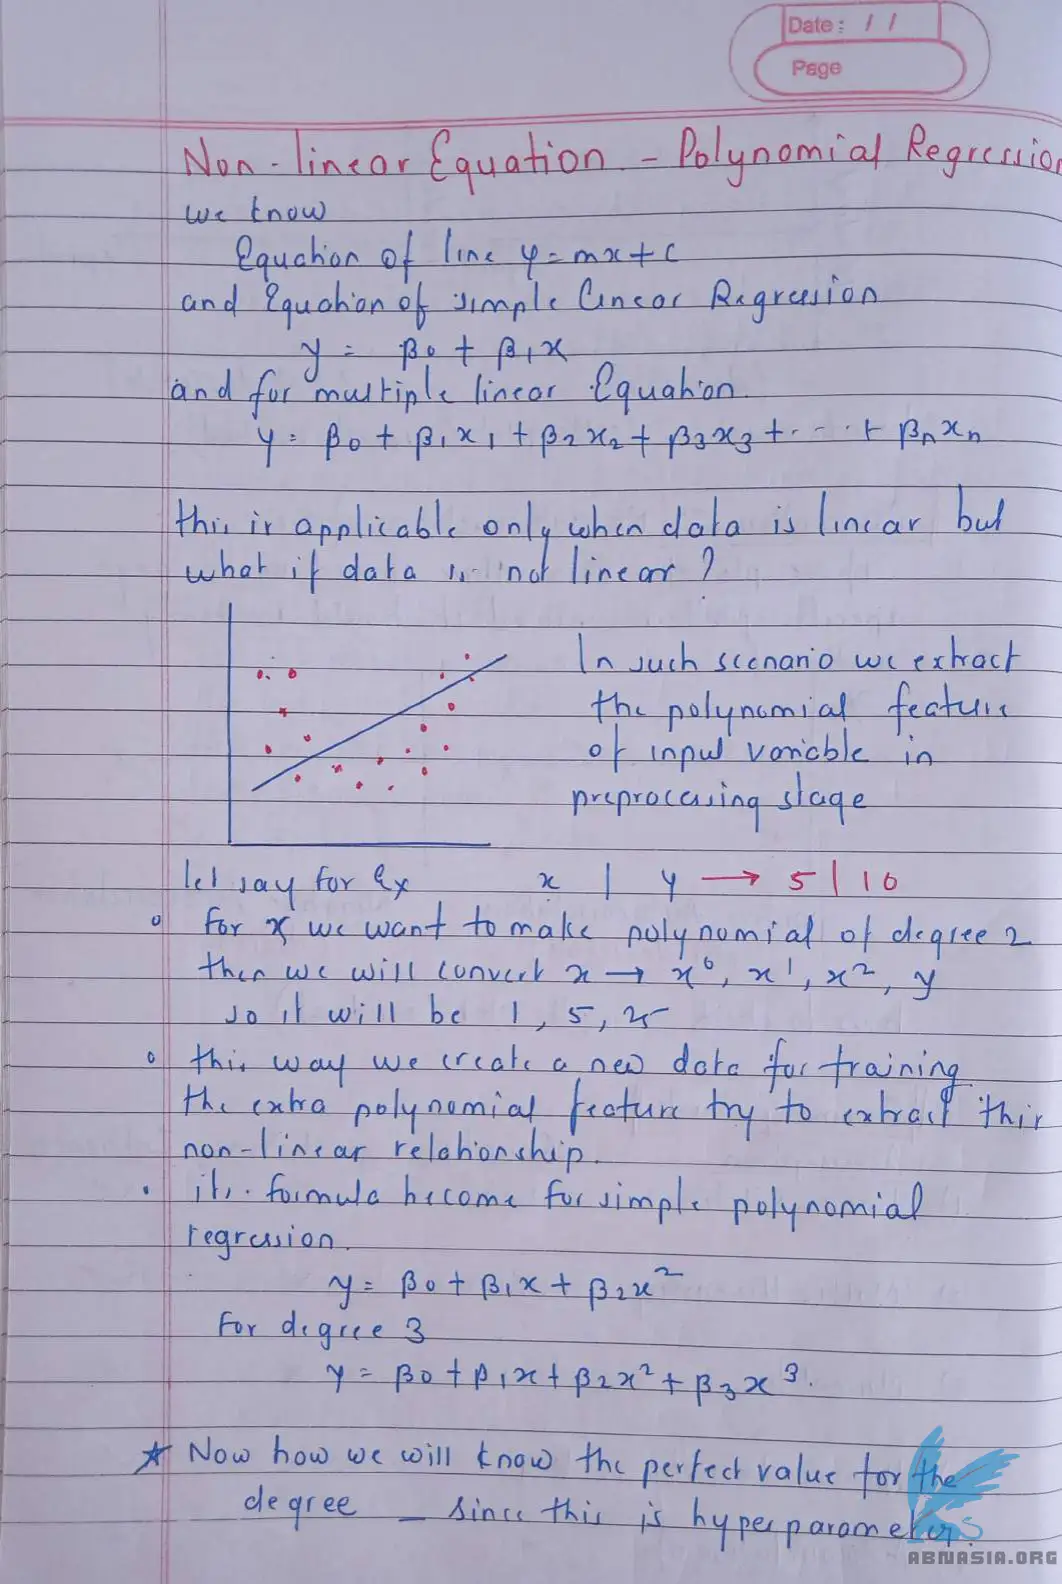 Date : / /
Page
Non-linear Equation - Polynomial Regression
we know
Equation of line y = mx + c
and Equation of simple linear Regression
y = β₀ + β₁x
and for multiple linear Equation
y = β₀ + β₁x₁ + β₂x₂ + β₃x₃ + ..... + βₙxₙ
this is applicable only when data is linear but
what if data is not linear ?
In such scenario we extract
the polynomial feature
of input variable in
preprocessing stage
let say for Ex x | y → 5 | 10
for x we want to make polynomial of degree 2
then we will convert x → x⁰, x¹, x², y
so it will be 1, 5, 25
this way we create a new data for training
the extra polynomial feature try to extract this
non-linear relationship.
its formula become for simple polynomial
regression.
y = β₀ + β₁x + β₂x²
For degree 3
y = β₀ + β₁x + β₂x² + β₃x³.
★ Now how we will know the perfect value for the
degree - since this is hyperparameter.
ABNASIA.ORG